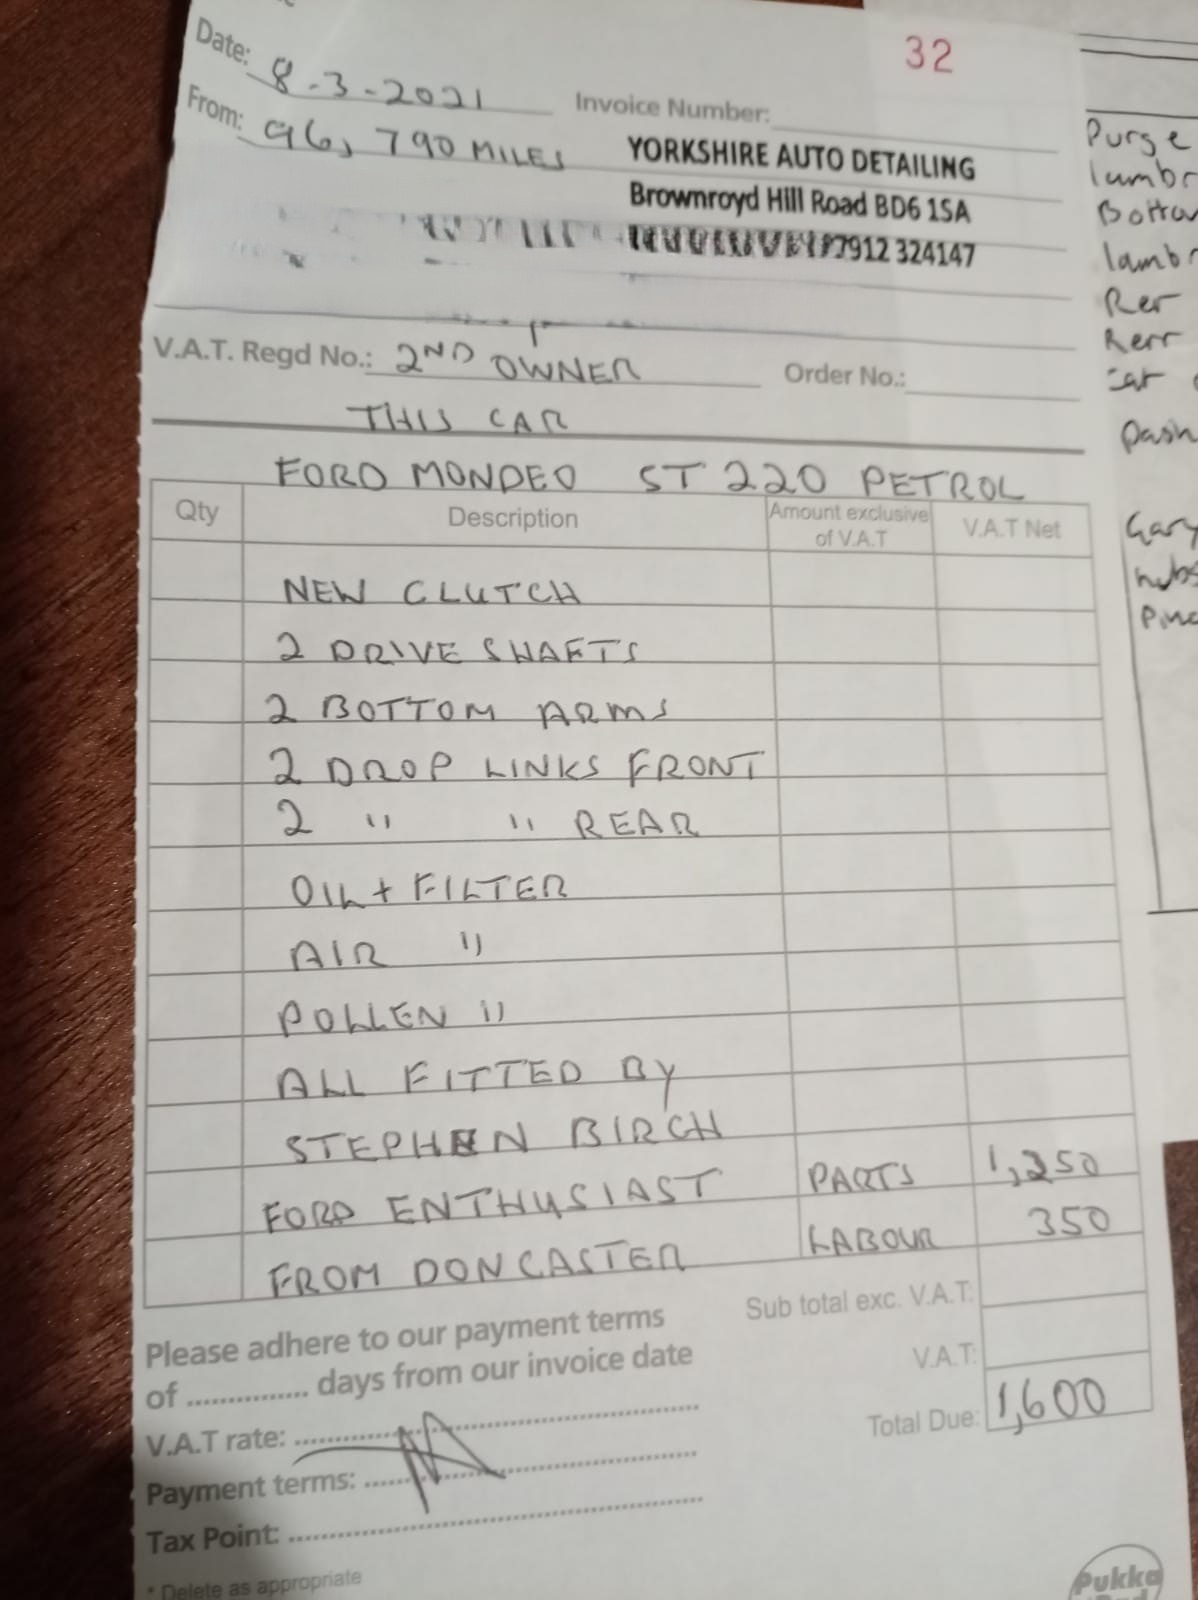 32
Date: 8-3-2021
Invoice Number:
From: 96,790 MILES
YORKSHIRE AUTO DETAILING
Brownroyd Hill Road BD6 1SA
7912 324147
V.A.T. Regd No.: 2ND OWNER
Order No.:
THIS CAR
FORD MONDEO ST 220 PETROL
Qty Description Amount exclusive of V.A.T V.A.T Net
NEW CLUTCH
2 DRIVE SHAFTS
2 BOTTOM ARMS
2 DROP LINKS FRONT
2 " " REAR
OIL + FILTER
AIR "
POLLEN "
ALL FITTED BY
STEPHEN BIRCH
FORD ENTHUSIAST PARTS 1,250
FROM DONCASTER LABOUR 350
Sub total exc. V.A.T:
V.A.T:
Total Due: 1,600
Please adhere to our payment terms
of .............. days from our invoice date
V.A.T rate:
Payment terms:
Tax Point:
* Delete as appropriate
Pukka
Purge
lambr
Rer
Rerr
Dash
Gary
hubs